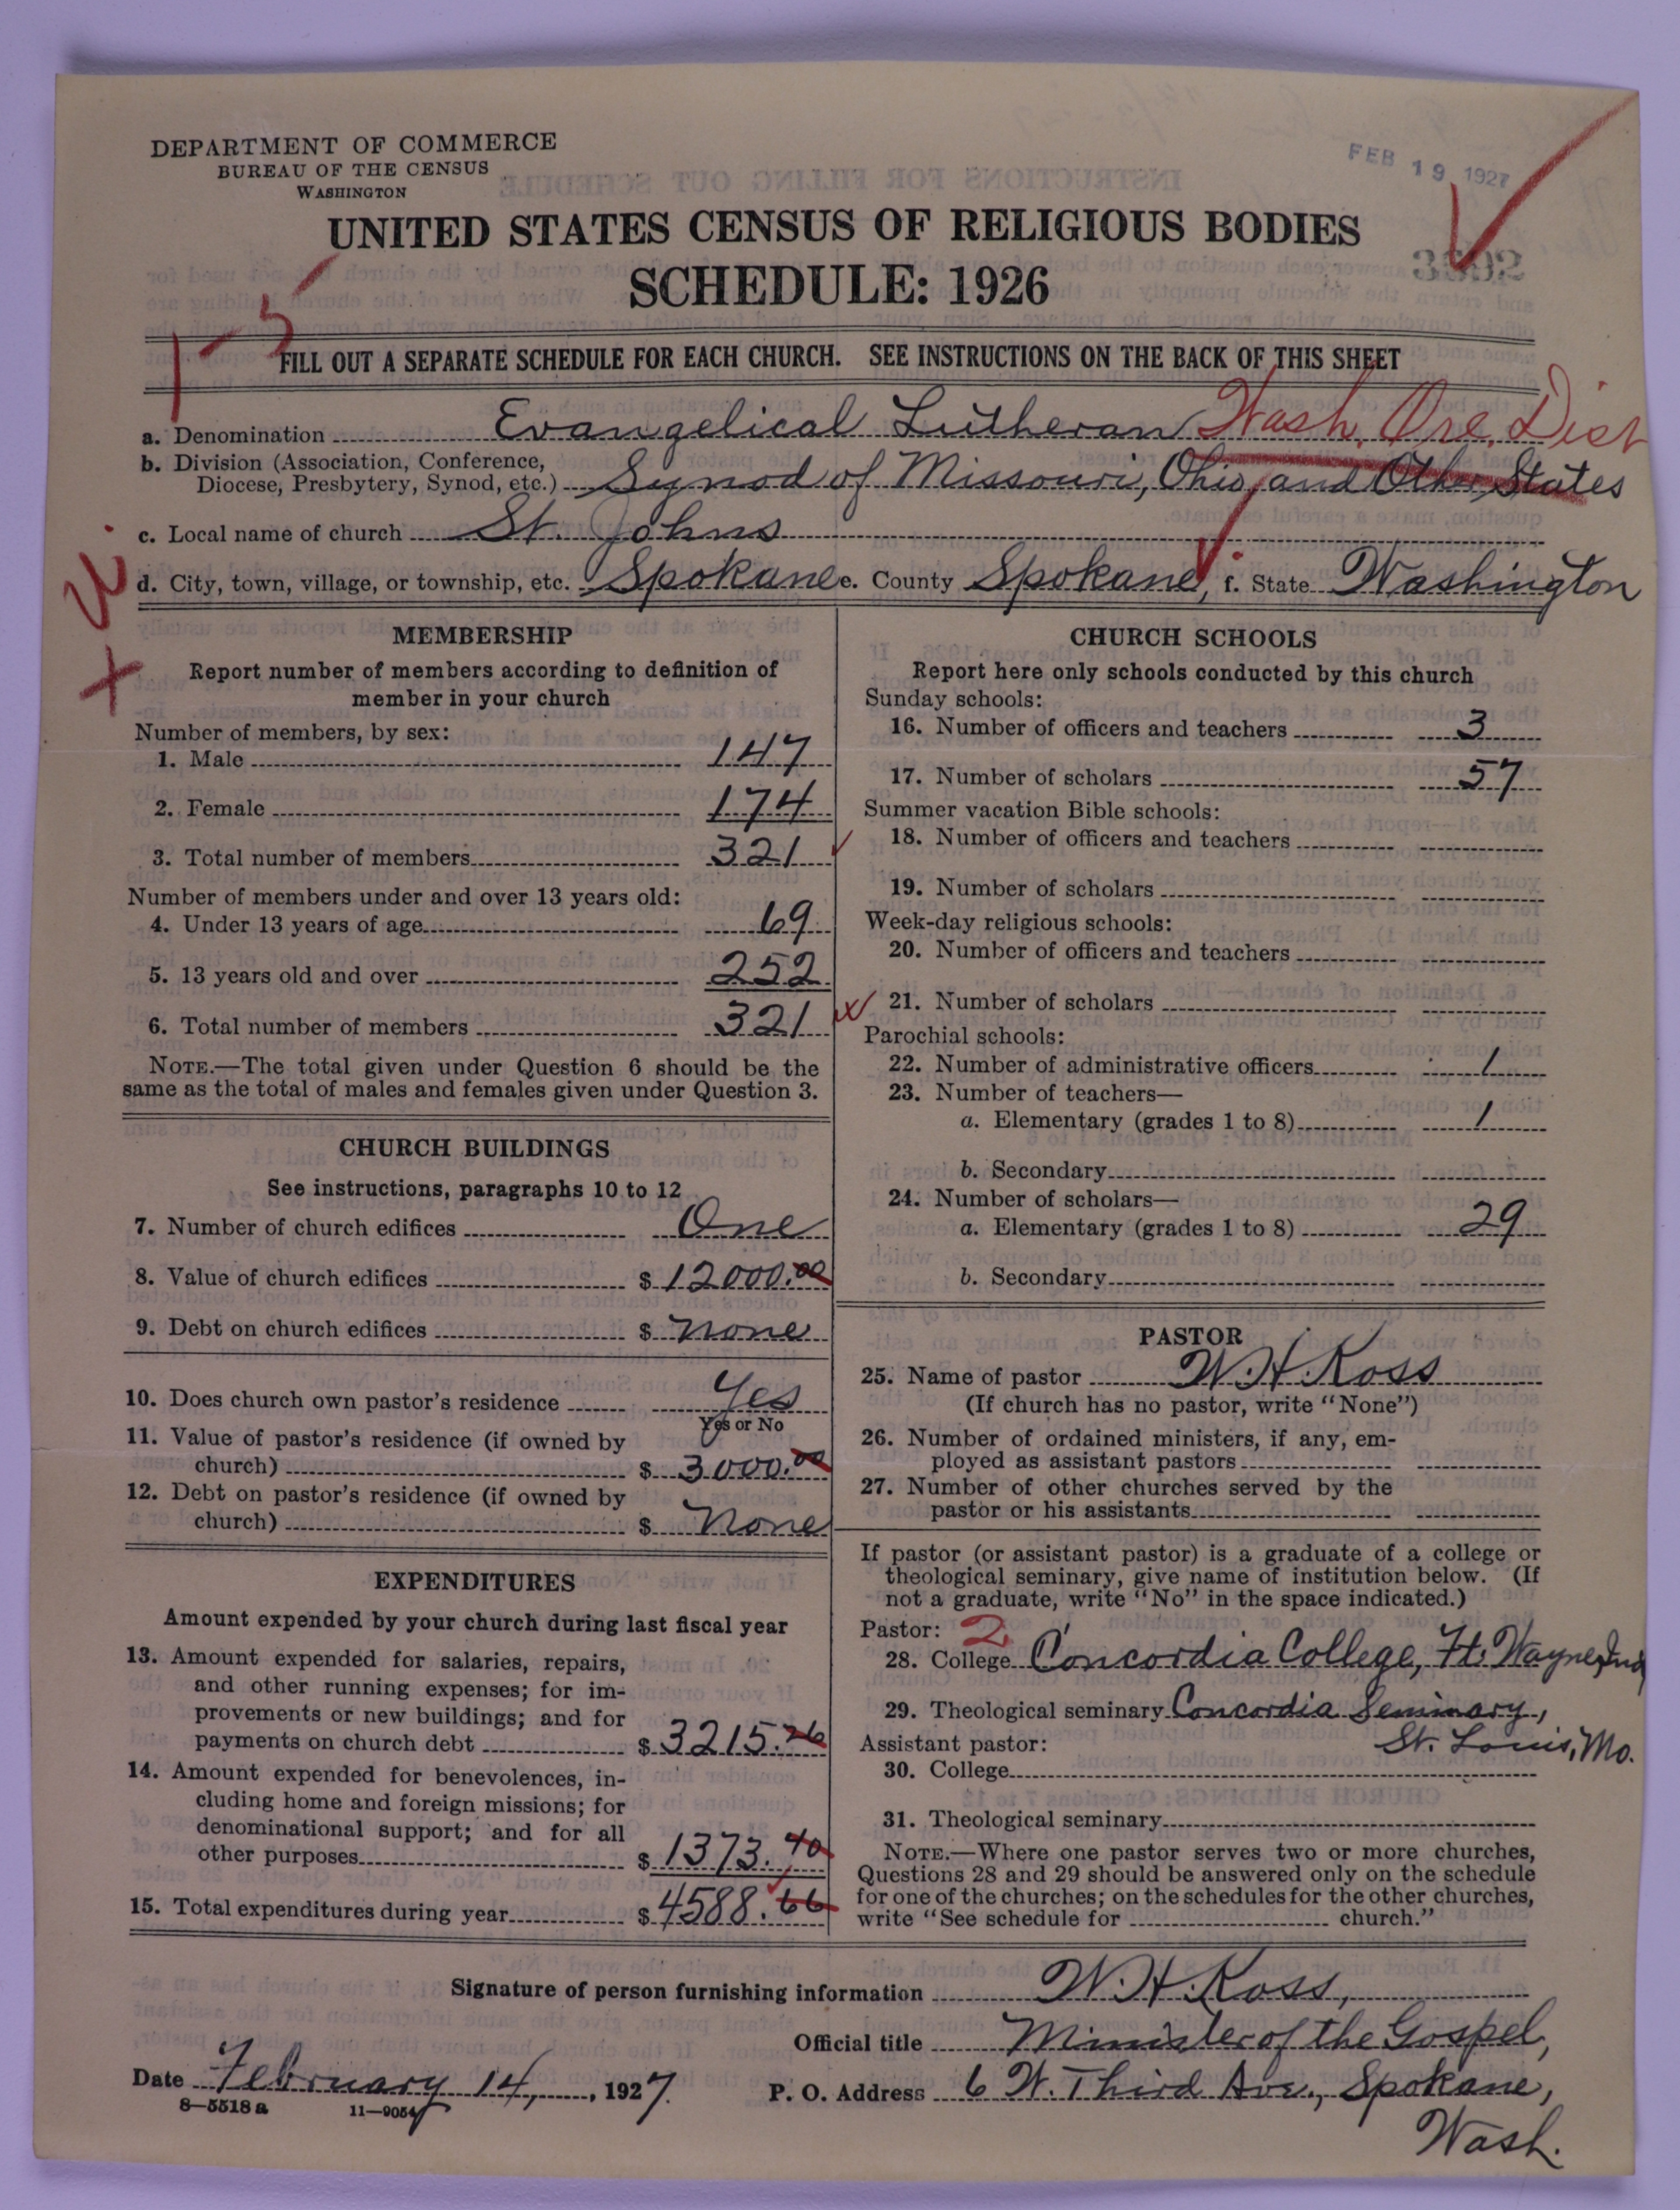 DEPARTMENT OF COMMERCE
BUREAU OF THE CENSUS
WASHINGTON
FEB 19 1927
UNITED STATES CENSUS OF RELIGIOUS BODIES
SCHEDULE: 1926
1-5
FILL OUT A SEPARATE SCHEDULE FOR EACH CHURCH. SEE INSTRUCTIONS ON THE BACK OF THIS SHEET
a. Denomination Evangelical Lutheran Wash, Ore, Dist
b. Division (Association, Conference,
Diocese, Presbytery, Synod, etc.) Synod of Missouri, Ohio, and Other States
c. Local name of church St. Johns
d. City, town, village, or township, etc. Spokane e. County Spokane, f. State Washington
MEMBERSHIP
Report number of members according to definition of
member in your church
Number of members, by sex:
1. Male 147
2. Female 174
3. Total number of members 321
Number of members under and over 13 years old:
4. Under 13 years of age 69
5. 13 years old and over 252
6. Total number of members 321
NOTE.—The total given under Question 6 should be the
same as the total of males and females given under Question 3.
CHURCH BUILDINGS
See instructions, paragraphs 10 to 12
7. Number of church edifices One
8. Value of church edifices $ 12000.00
9. Debt on church edifices $ none
10. Does church own pastor's residence Yes
Yes or No
11. Value of pastor's residence (if owned by
church) $ 3000.00
12. Debt on pastor's residence (if owned by
church) $ None
EXPENDITURES
Amount expended by your church during last fiscal year
13. Amount expended for salaries, repairs,
and other running expenses; for im-
provements or new buildings; and for
payments on church debt $ 3215.26
14. Amount expended for benevolences, in-
cluding home and foreign missions; for
denominational support; and for all
other purposes $ 1373.40
15. Total expenditures during year $ 4588.66
CHURCH SCHOOLS
Report here only schools conducted by this church
Sunday schools:
16. Number of officers and teachers 3
17. Number of scholars 57
Summer vacation Bible schools:
18. Number of officers and teachers
19. Number of scholars
Week-day religious schools:
20. Number of officers and teachers
21. Number of scholars
Parochial schools:
22. Number of administrative officers 1
23. Number of teachers—
a. Elementary (grades 1 to 8) 1
b. Secondary
24. Number of scholars—
a. Elementary (grades 1 to 8) 29
b. Secondary
PASTOR
25. Name of pastor W. H. Koss
(If church has no pastor, write "None")
26. Number of ordained ministers, if any, em-
ployed as assistant pastors
27. Number of other churches served by the
pastor or his assistants
If pastor (or assistant pastor) is a graduate of a college or
theological seminary, give name of institution below. (If
not a graduate, write "No" in the space indicated.)
Pastor: 2
28. College Concordia College, Ft. Wayne, Ind
29. Theological seminary Concordia Seminary,
St. Louis, Mo.
Assistant pastor:
30. College
31. Theological seminary
NOTE.—Where one pastor serves two or more churches,
Questions 28 and 29 should be answered only on the schedule
for one of the churches; on the schedules for the other churches,
write "See schedule for church."
Signature of person furnishing information W. H. Koss,
Official title Minister of the Gospel,
Date February 14, 1927. P. O. Address 6 W. Third Ave., Spokane,
Wash.
8—5518a 11—9054